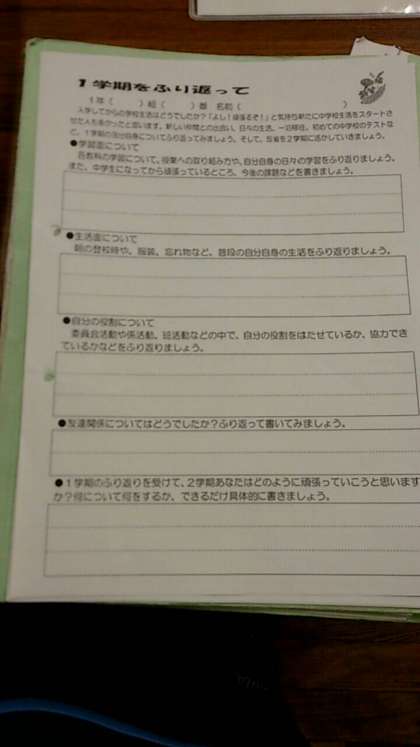 1学期をふり返って
1年（　　）組（　　）番　名前（　　　　　　　　）
入学してからの学校生活はどうでしたか？「よし！頑張るぞ！」と気持ち新たに中学校生活をスタートさ
せた人も多かったと思います。新しい仲間との出会い、日々の生活、一泊移住、初めての中学校のテストな
ど、1学期の自分自身についてふり返ってみましょう。そして、反省を2学期に活かしていきましょう。
●学習面について
各教科の学習について、授業への取り組み方や、自分自身の日々の学習をふり返りましょう。
また、中学生になってから頑張っているところ、今後の課題などを書きましょう。
●生活面について
朝の登校時や、服装、忘れ物など、普段の自分自身の生活をふり返りましょう。
●自分の役割について
委員会活動や係活動、班活動などの中で、自分の役割をはたせているか、協力でき
ているかなどをふり返りましょう。
●友達関係についてはどうでしたか？ふり返って書いてみましょう。
●1学期のふり返りを受けて、2学期あなたはどのように頑張っていこうと思います
か？何について何をするか、できるだけ具体的に書きましょう。